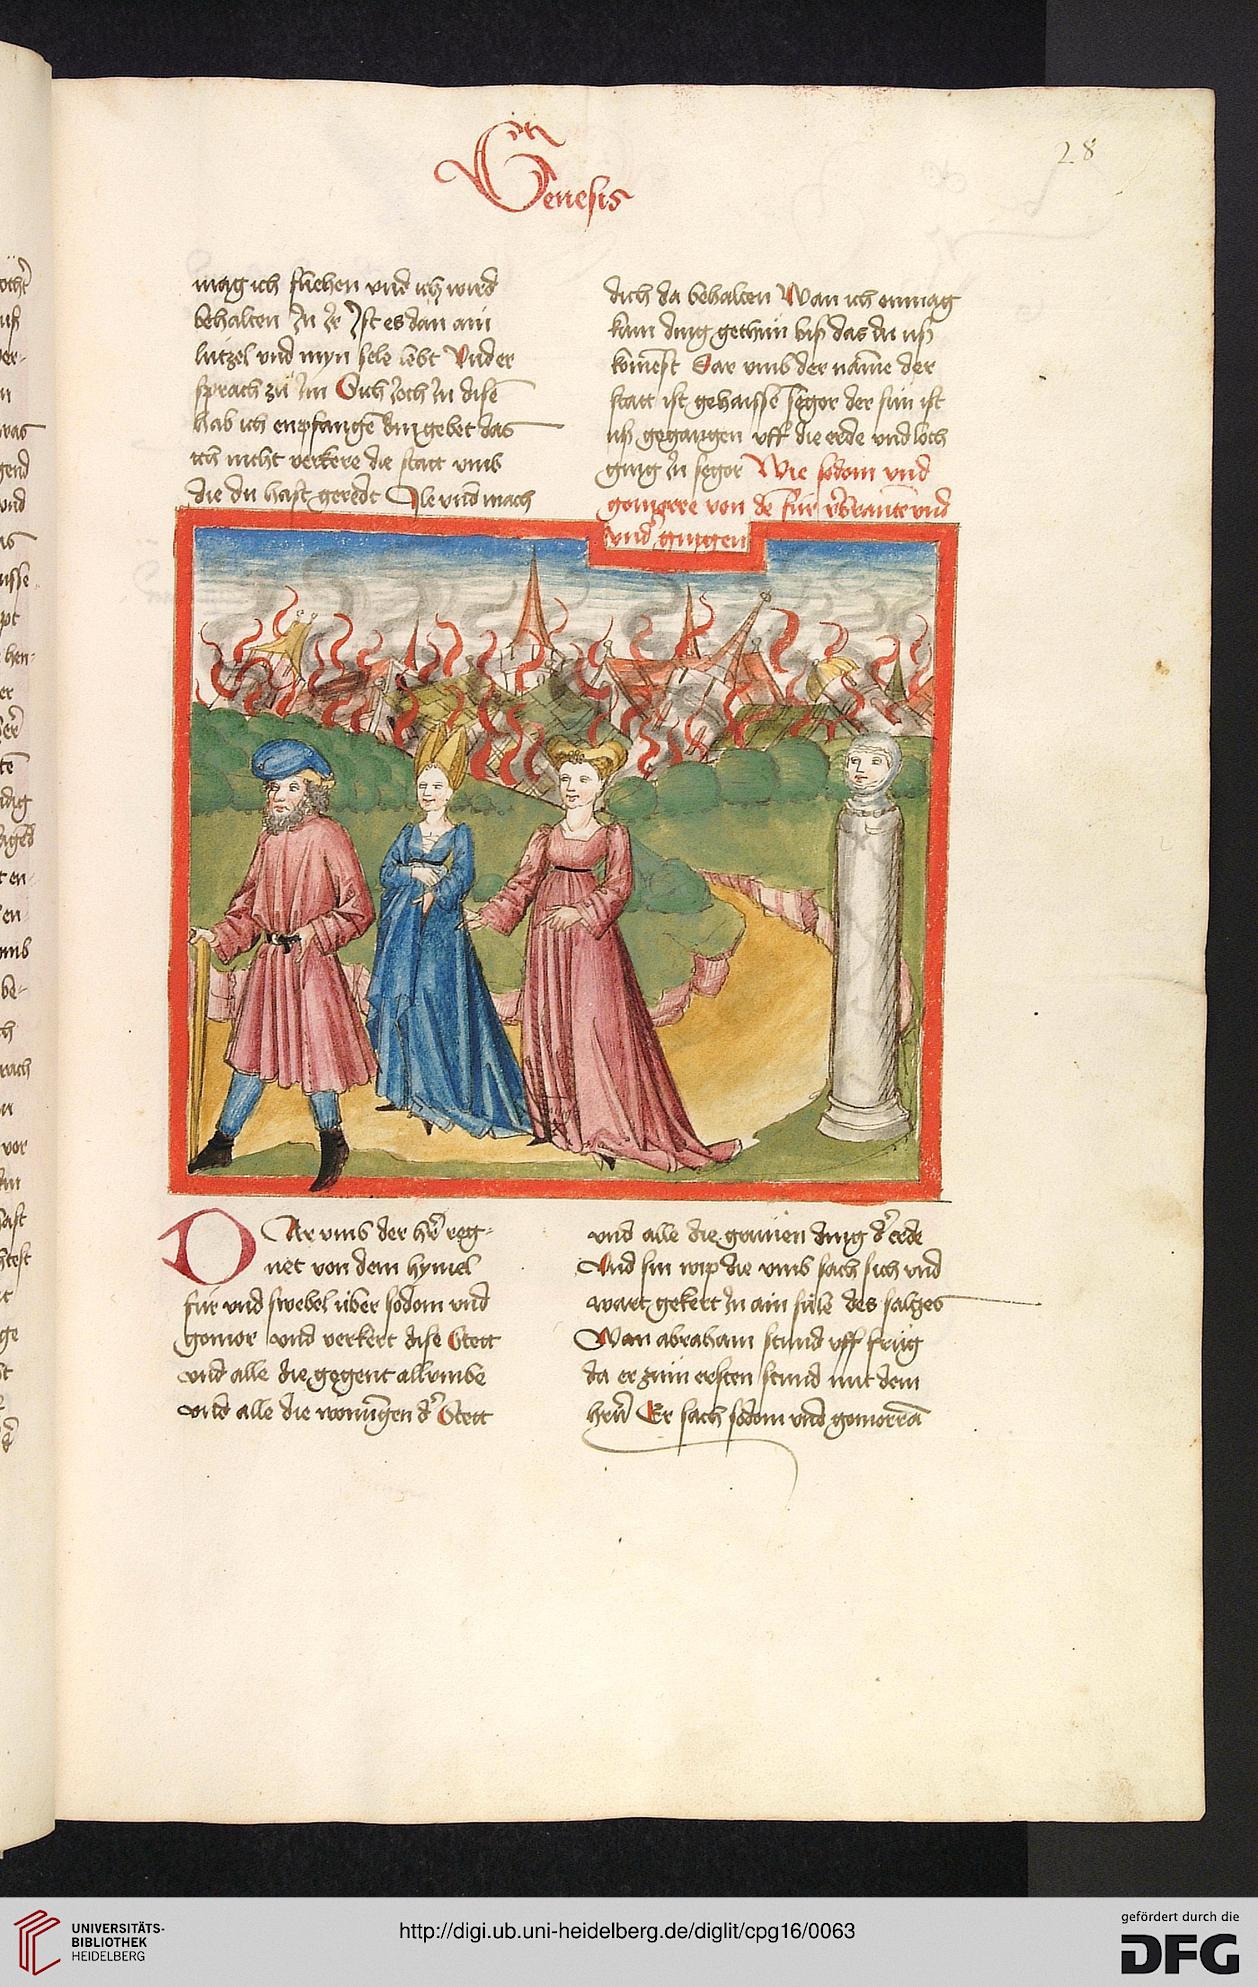 Genesis
28
mag ich fliehen vnd ich wird
behalten Jn Jr Jst es dan ain
lützel vnd myn sele lebt Vnd er
sprach zü Jm Sich Joch Jn disē
hab ich enpfangē din gebet das
ich nicht verkere die statt vmb
die du hast geredt Jle vnd mach
dich da behalten Wan ich enmag
kain ding gethůn biß das du uß
komest Dar vmb der name der
statt ist gehaissē segor der sūn ist
uß gegangen vff die erde vnd loth
ging Jn segor Wie sodom vnd
gomorre von dē für v̾brantē vnd
vnd̾ gingen
DAr vmb der hr̄e reg-
net von dem hymel
für vnd swebel über sodom vnd
gomor vnd verkert dise Stett
vnd alle die gegent all vmbe
vnd alle die wonūgen d̾ Stett
vnd alle die grünen ding d̾ erde
Vnd sin wip die vmb sach sich vnd
wart gekert Jn ain sülē des salczes
Wan abraham stund vff früg
da er züm ersten stund mit dem
hrn̄ Er sach sodom vnd gomorrā
UNIVERSITÄTS-
BIBLIOTHEK
HEIDELBERG
http://digi.ub.uni-heidelberg.de/diglit/cpg16/0063
gefördert durch die
DFG